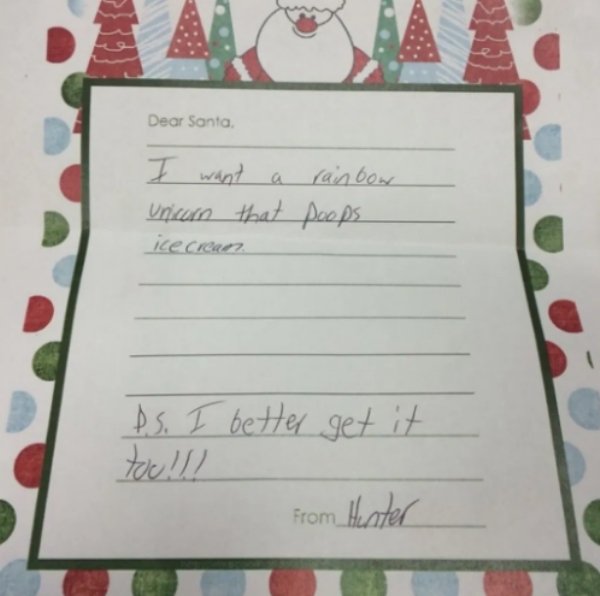 Dear Santa,
I want a rainbow
unicorn that poops
ice cream.
P.S. I better get it
too!!!
From Hunter